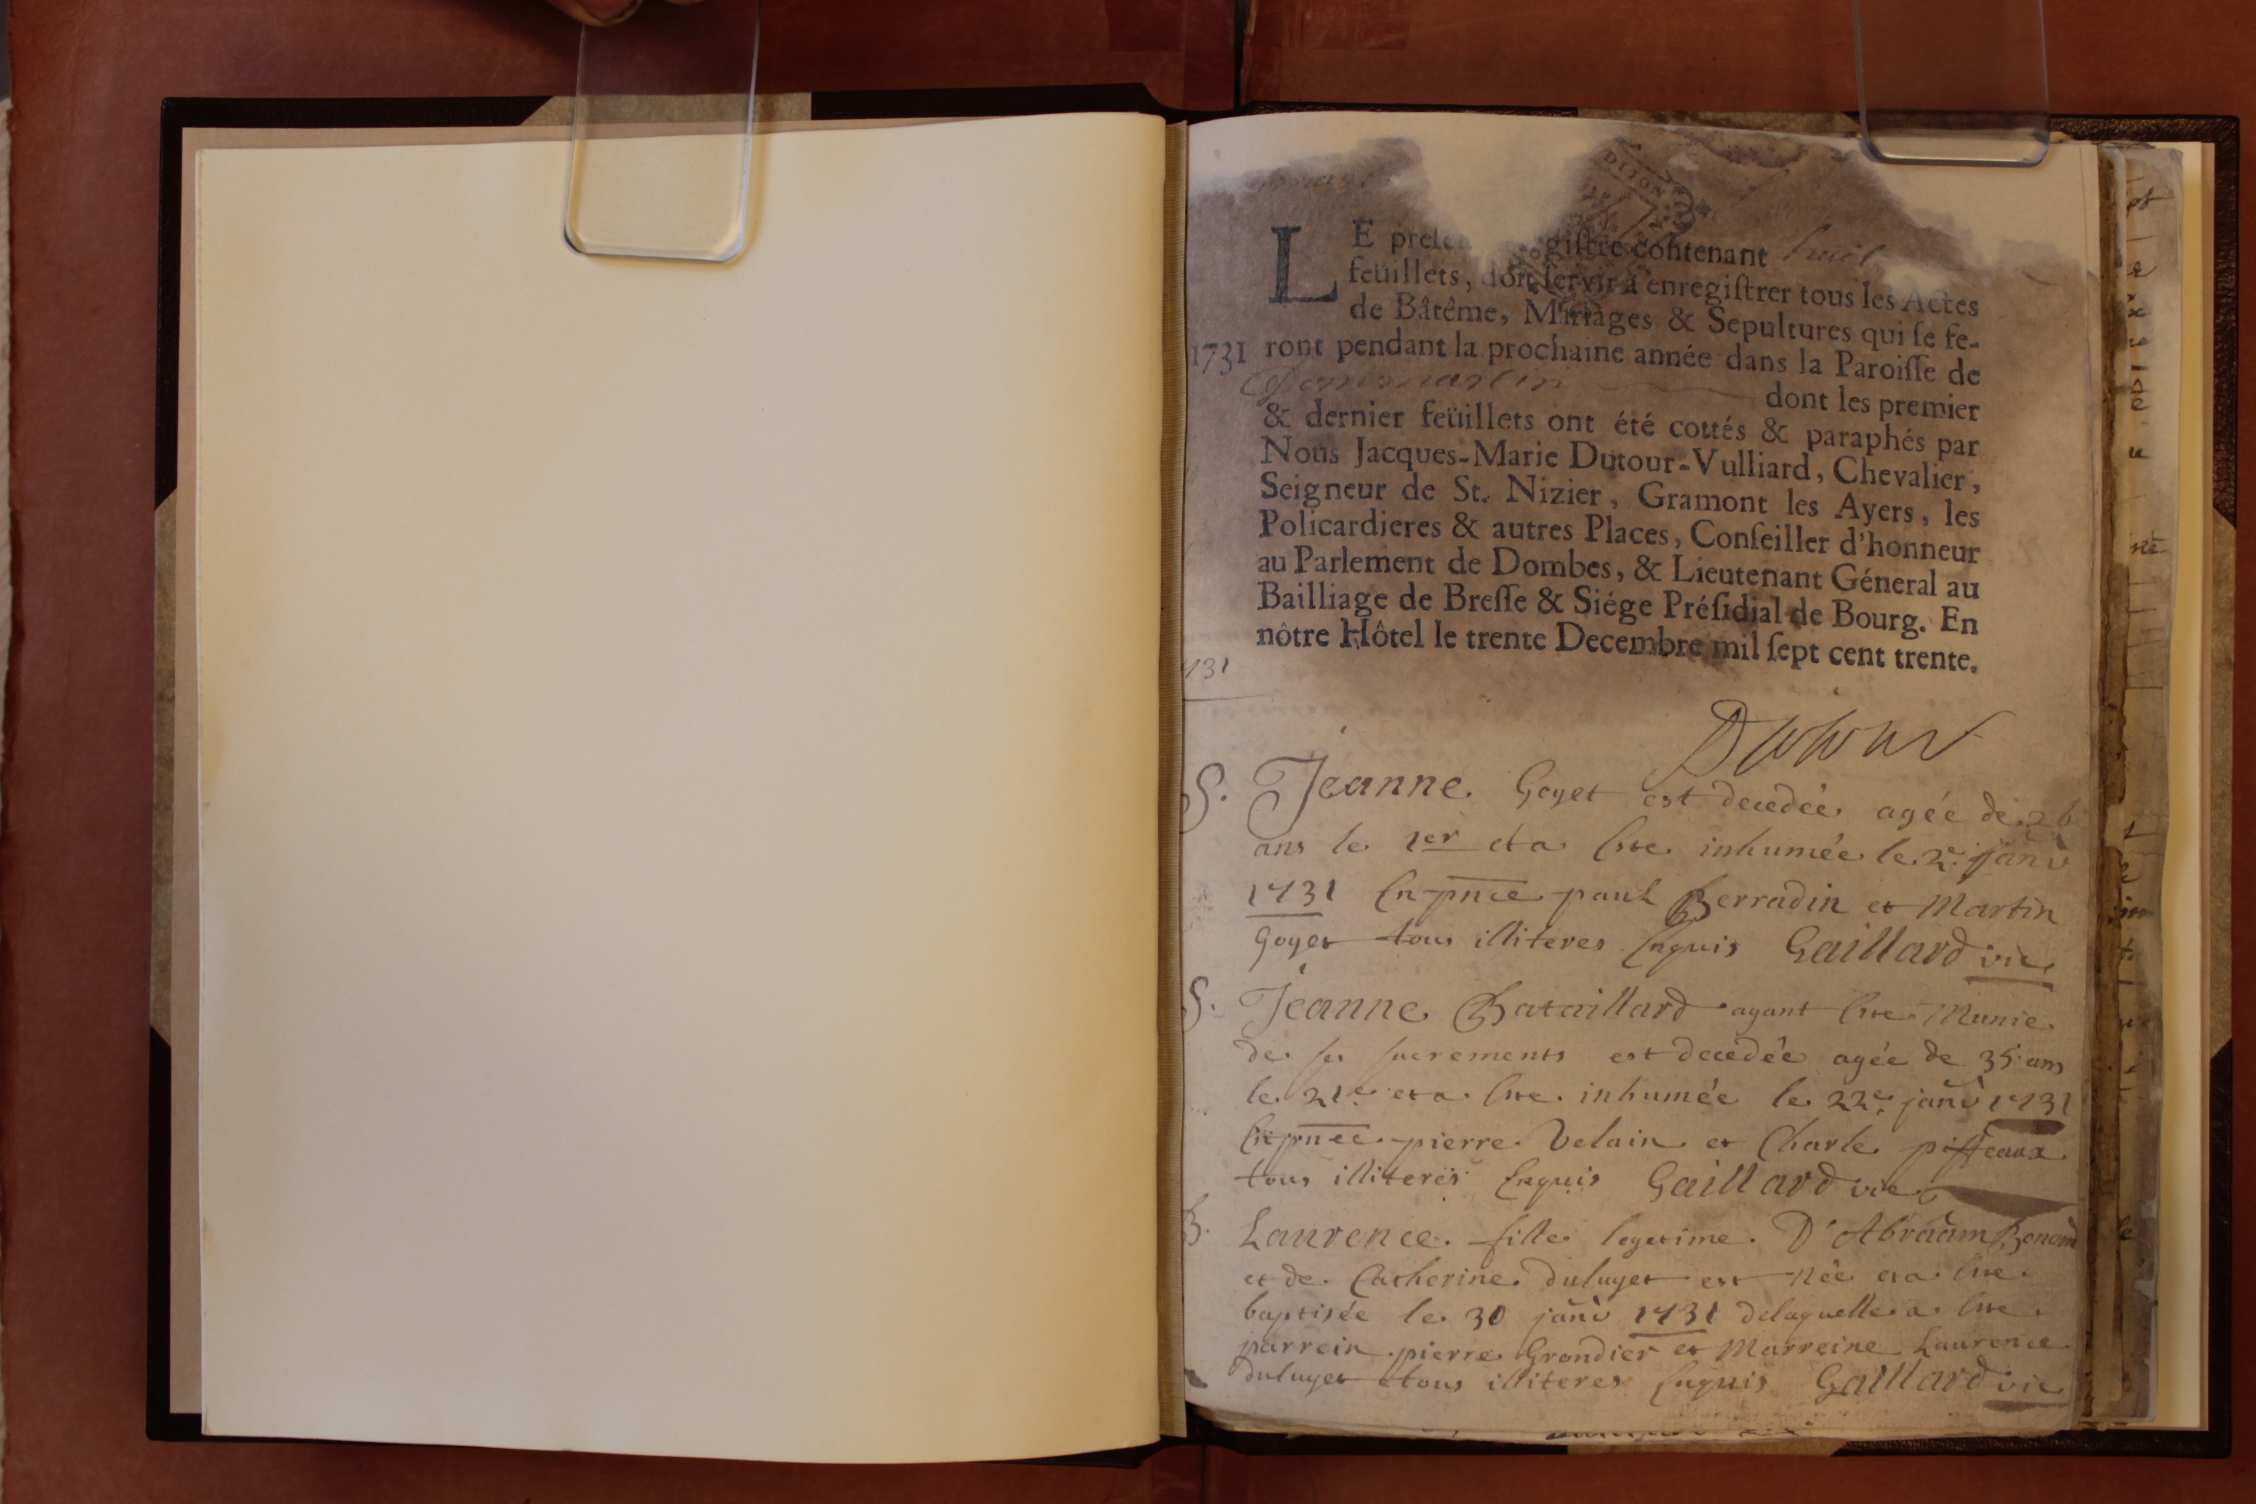 DIJON
LE presen gistre contenant huit
feüillets, doit servir à enregistrer tous les Actes
de Bâtême, Mariages & Sepultures qui se fe-
1731 ront pendant la prochaine année dans la Paroisse de
Dommartin dont les premier
& dernier feüillets ont été cottés & paraphés par
Nous Jacques-Marie Dutour-Vulliard, Chevalier,
Seigneur de St. Nizier, Gramont les Ayers, les
Policardieres & autres Places, Conseiller d'honneur
au Parlement de Dombes, & Lieutenant Géneral au
Bailliage de Bresse & Siége Présidial de Bourg. En
nôtre Hôtel le trente Decembre mil sept cent trente.
731
Dutour
S. Jeanne Goyet est decedée agée de 26
ans le 1er et a Este inhumée le 2e janv
1731 En pnce paul Berradin et Martin
Goyet tous illiteres Enquis Gaillard vic
S. Jeanne Bataillard ayant Este Munie
de ses sacrements est decedée agée de 35 ans
le 21e et a Este inhumée le 22e janv 1731
En pnce pierre Velain et Charle piffeaux
tous illiteres Enquis Gaillard vic
B. Laurence fille legetime D'Abraam Bonom
et de Catherine Duluyet est Née et a Este
baptisée le 30 janv 1731 delaquelle a Este
parrein pierre Grandier et Marreine Laurence
Duluyet tous illiteres Enquis Gaillard vic